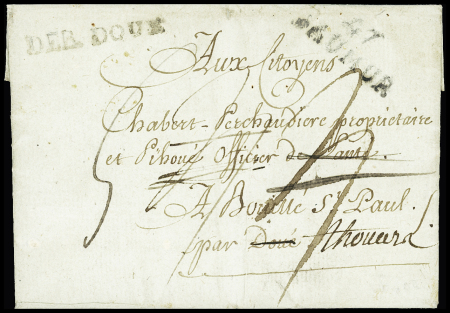 DEB. DOUÉ
47
SAUMUR
Aux Citoyens
Chabert-Perchaudiere propriétaire
et Pihoué Officier de Santé.
A Bouillé St Paul.
par Doué Thouars